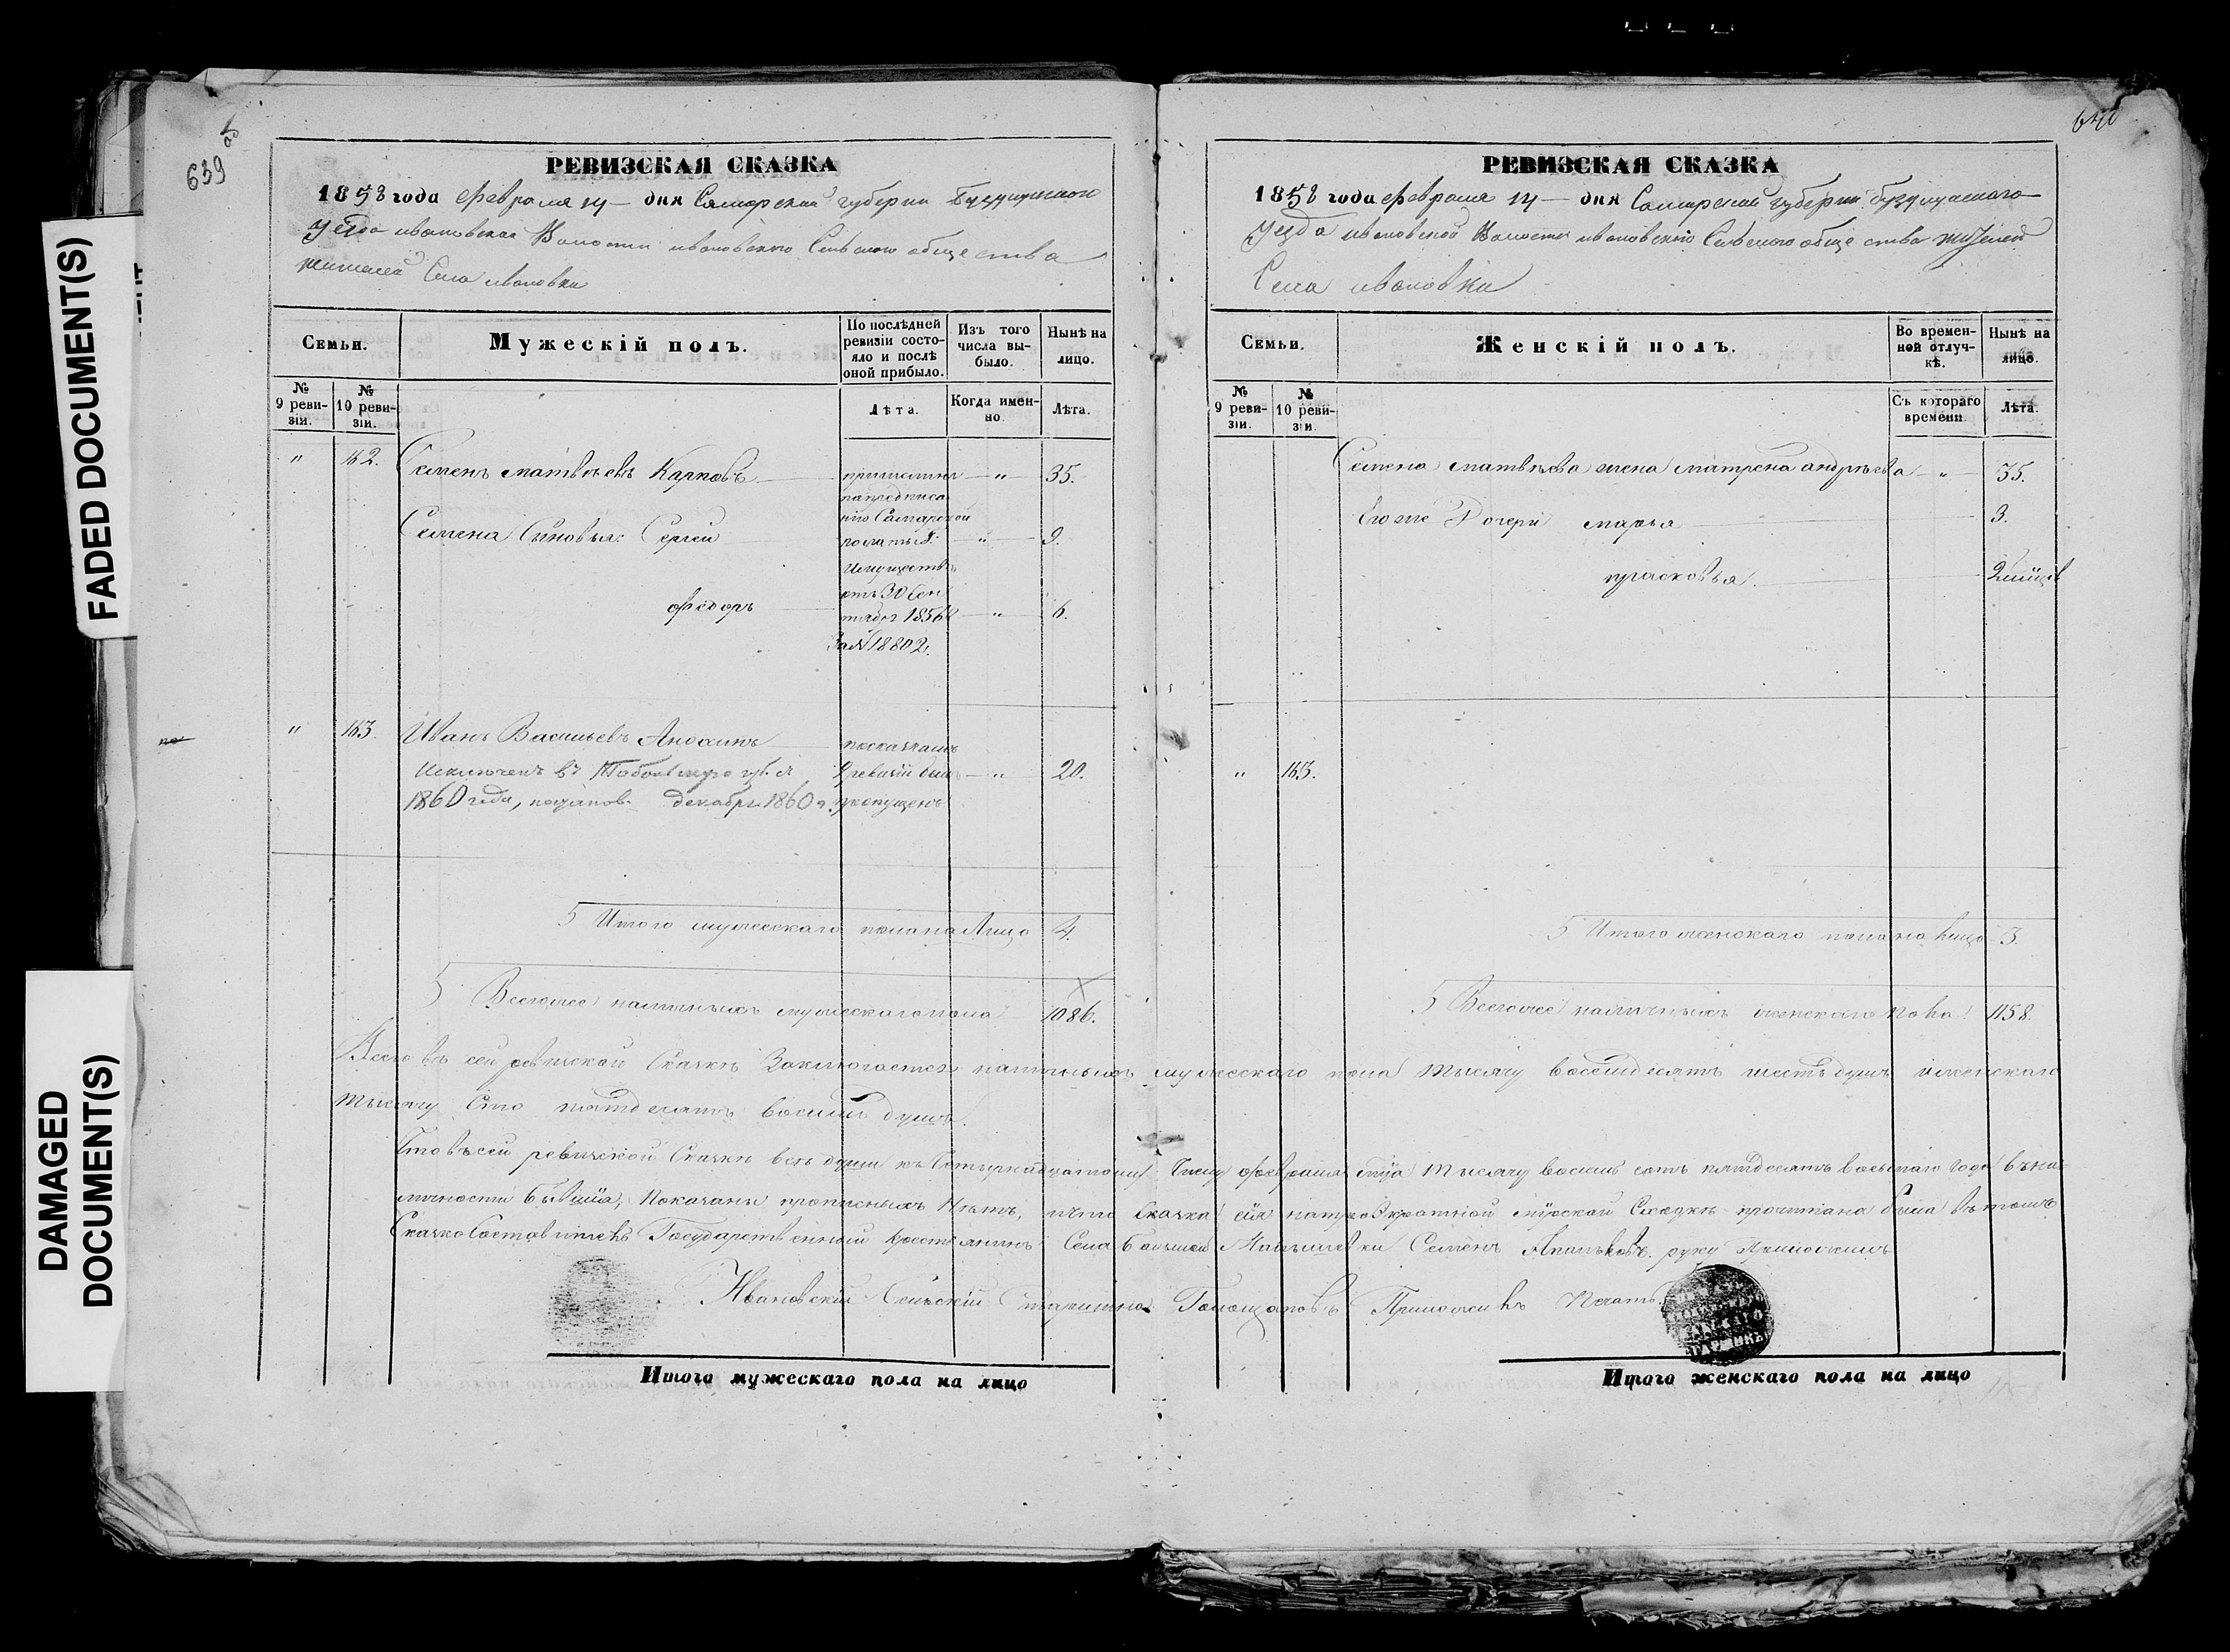 FADED DOCUMENT(S)
DAMAGED
DOCUMENT(S)
639
об
РЕВИЗСКАЯ СКАЗКА
1858 года февраля 14 дня Самарской губернии Бузулукскаго
Уезда ивановской Волости ивановскаго Сельскаго общества
жителей Села ивановки
Семьи.
Мужескій полъ.
По послѣдней ревизіи состояло и послѣ оной прибыло.
Изъ того числа выбыло.
Нынѣ на лицо.
№ 9 ревизіи.
№ 10 ревизіи.
Лѣта.
Когда именно.
Лѣта.
" 162. Семенъ матвѣевъ Карповъ причисленъ " 35.
по предписа
нію Самарской
Семена Сыновья: Сергей палаты г. " 9.
имуществъ
отъ 30 Сен
федоръ тября 1856 " 6.
За № 18802.
" 163. Иванъ Васильевъ Анохинъ по сказкамъ
Исключенъ въ 9 ревизіи былъ " 20.
1860 года, декабря 1860 г. пропущенъ
5 Итого мужескаго пола на Лицо 4.
5 Всего же наличныхъ мужескаго пола 1086.
640
РЕВИЗСКАЯ СКАЗКА
1858 года февраля 14 дня Самарской губерніи бузулукскаго
Уезда ивановской Волости ивановскаго Сельскаго общества жителей
Села ивановки
Семьи.
Женскій полъ.
Во временной отлучкѣ.
Нынѣ на лицо.
№ 9 ревизіи.
№ 10 ревизіи.
Съ котораго времени
Лѣта.
Семена матвѣева жена матрена андрѣева " 35.
Его же Дочери марья 3.
прасковья. 2 мѣсц
" 163.
5 Итого женскаго пола на лицо 3.
5 Всего же наличныхъ женскаго пола 1158.
Всего въ сей ревизской Сказкѣ Заключается наличныхъ мужескаго пола тысячу восемдесятъ шесть душъ и женскаго
тысячу Сто пятдесятъ восимь душъ.
Что въ сей ревизской Сказкѣ всѣ души къ Четырнадцатому Числу февраля мца тысячу восемь сотъ пятдесятъ восьмаго года въ на
личности бывшія, показаны прописныхъ Нѣтъ, и что Сказка сія на мірской Сходкѣ прочитана была въ томъ
Сказкосоставитель Государственный крестьянинъ Села большой Семенъ руку Приложилъ
Ивановскій Сельскій Старшина Приложилъ Печать.
Итого мужескаго пола на лицо
Итого женскаго пола на лицо